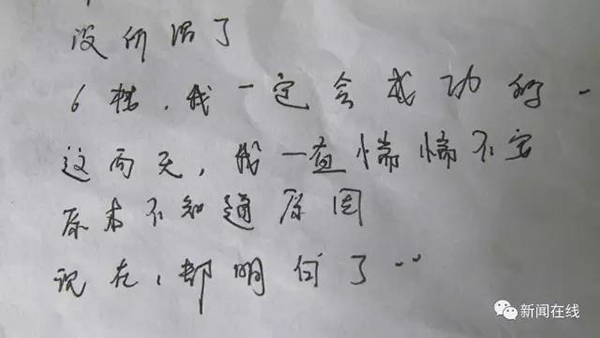 没价了
6楼，我一定会成功的。
这两天，我一直惴惴不安
原本不知道原因
现在，都明白了…
新闻在线